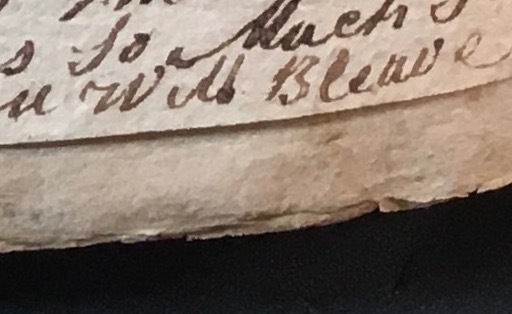 s So Much
u Will Bleave